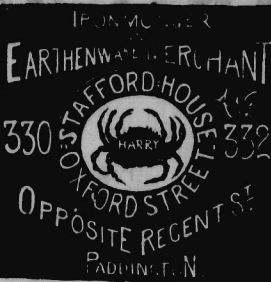 IRONMONGER
&
EARTHENWARE MERCHANT
330 STAFFORD HOUSE 332
HARRY
OXFORD STREET
OPPOSITE REGENT ST
PADDINGTON